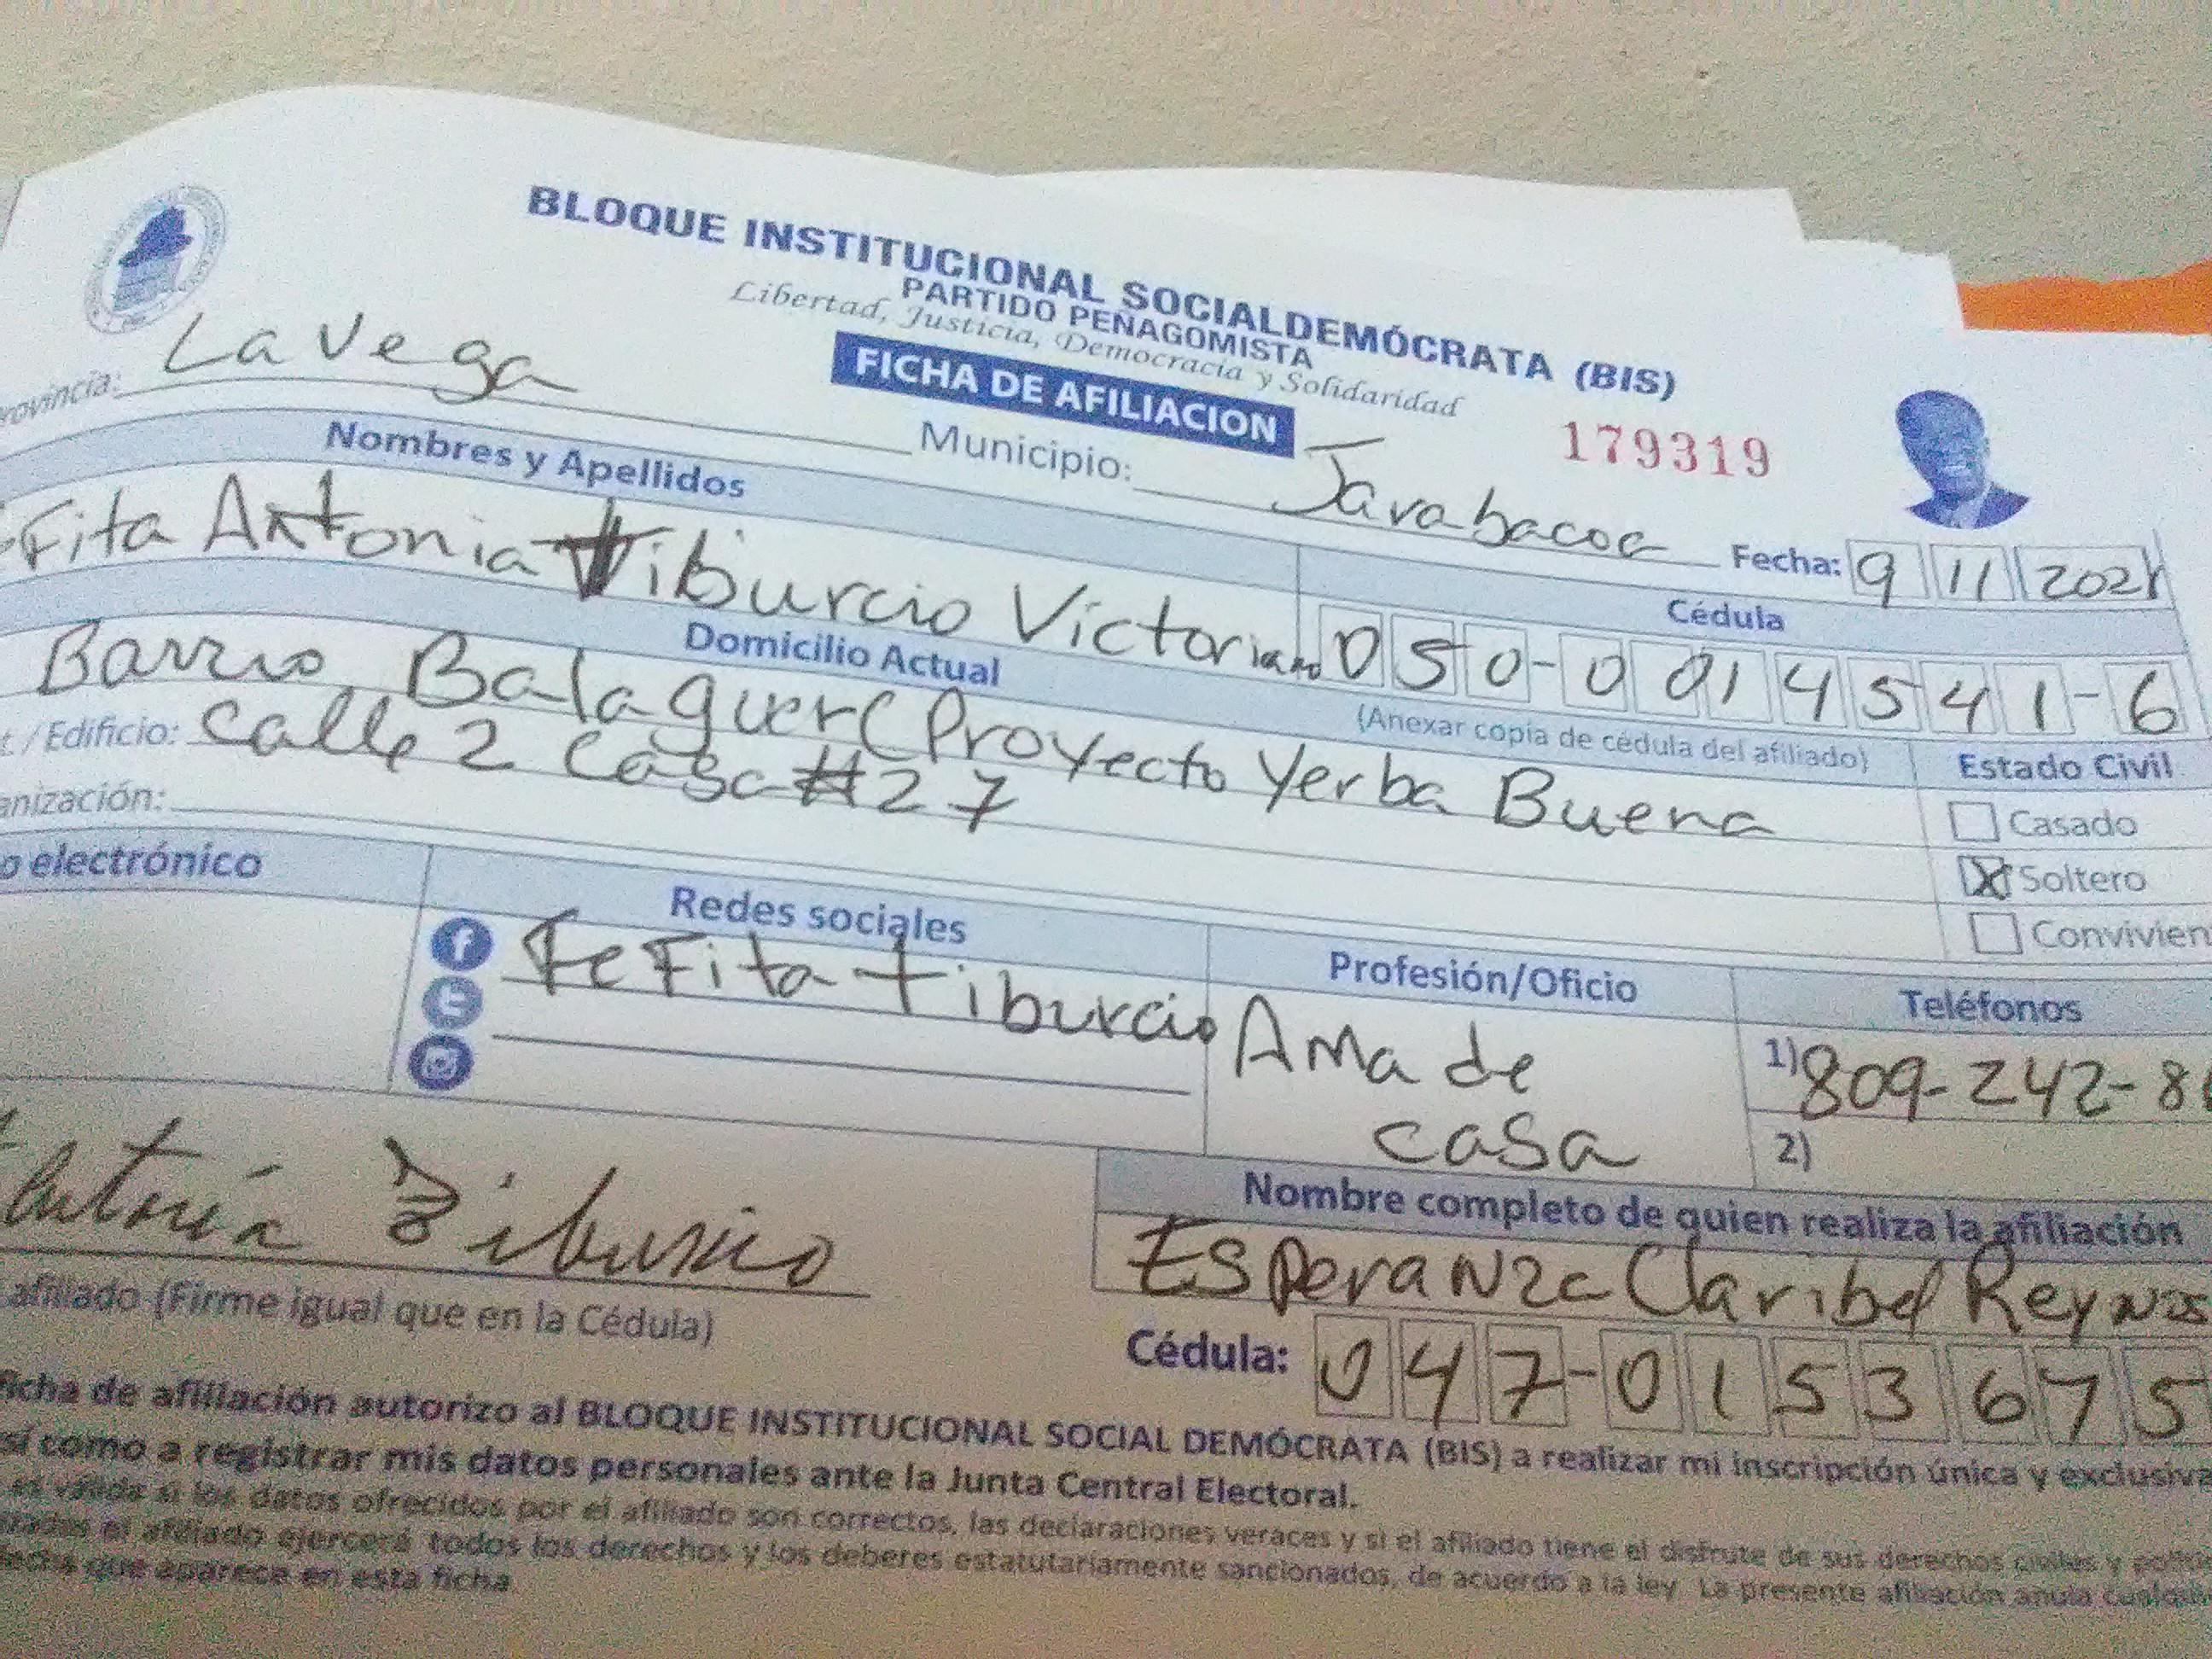 BLOQUE INSTITUCIONAL SOCIALDEMÓCRATA (BIS)
PARTIDO PEÑAGOMISTA
Libertad, Justicia, Democracia y Solidaridad
FICHA DE AFILIACION
179319
rovincia: La Vega Municipio: Jarabacoa Fecha: 9 11 2021
Nombres y Apellidos Cédula
Fita Antonia Tiburcio Victoriano 050-0014541-6
Domicilio Actual (Anexar copia de cédula del afiliado) Estado Civil
Barrio Balaguer (Proyecto Yerba Buena
t. / Edificio: Calle 2 Casa #27
Casado
anización:
Soltero
Convivien
o electrónico Redes sociales Profesión/Oficio Teléfonos
FeFita tiburcio Ama de casa 1) 809-242-8
2)
Antonia Tiburcio
Nombre completo de quien realiza la afiliación
Esperanza Claribel Reynos
afiliado (Firme igual que en la Cédula) Cédula: 047-0153675
ficha de afiliación autorizo al BLOQUE INSTITUCIONAL SOCIAL DEMÓCRATA (BIS) a realizar mi inscripción única y exclusiva
sí como a registrar mis datos personales ante la Junta Central Electoral.
es válida si los datos ofrecidos por el afiliado son correctos, las declaraciones veraces y si el afiliado tiene el disfrute de sus derechos civiles y
el afiliado ejercerá todos los derechos y los deberes estatutariamente sancionados, de acuerdo a la ley. La presente afiliación anula
fecha que aparece en esta ficha